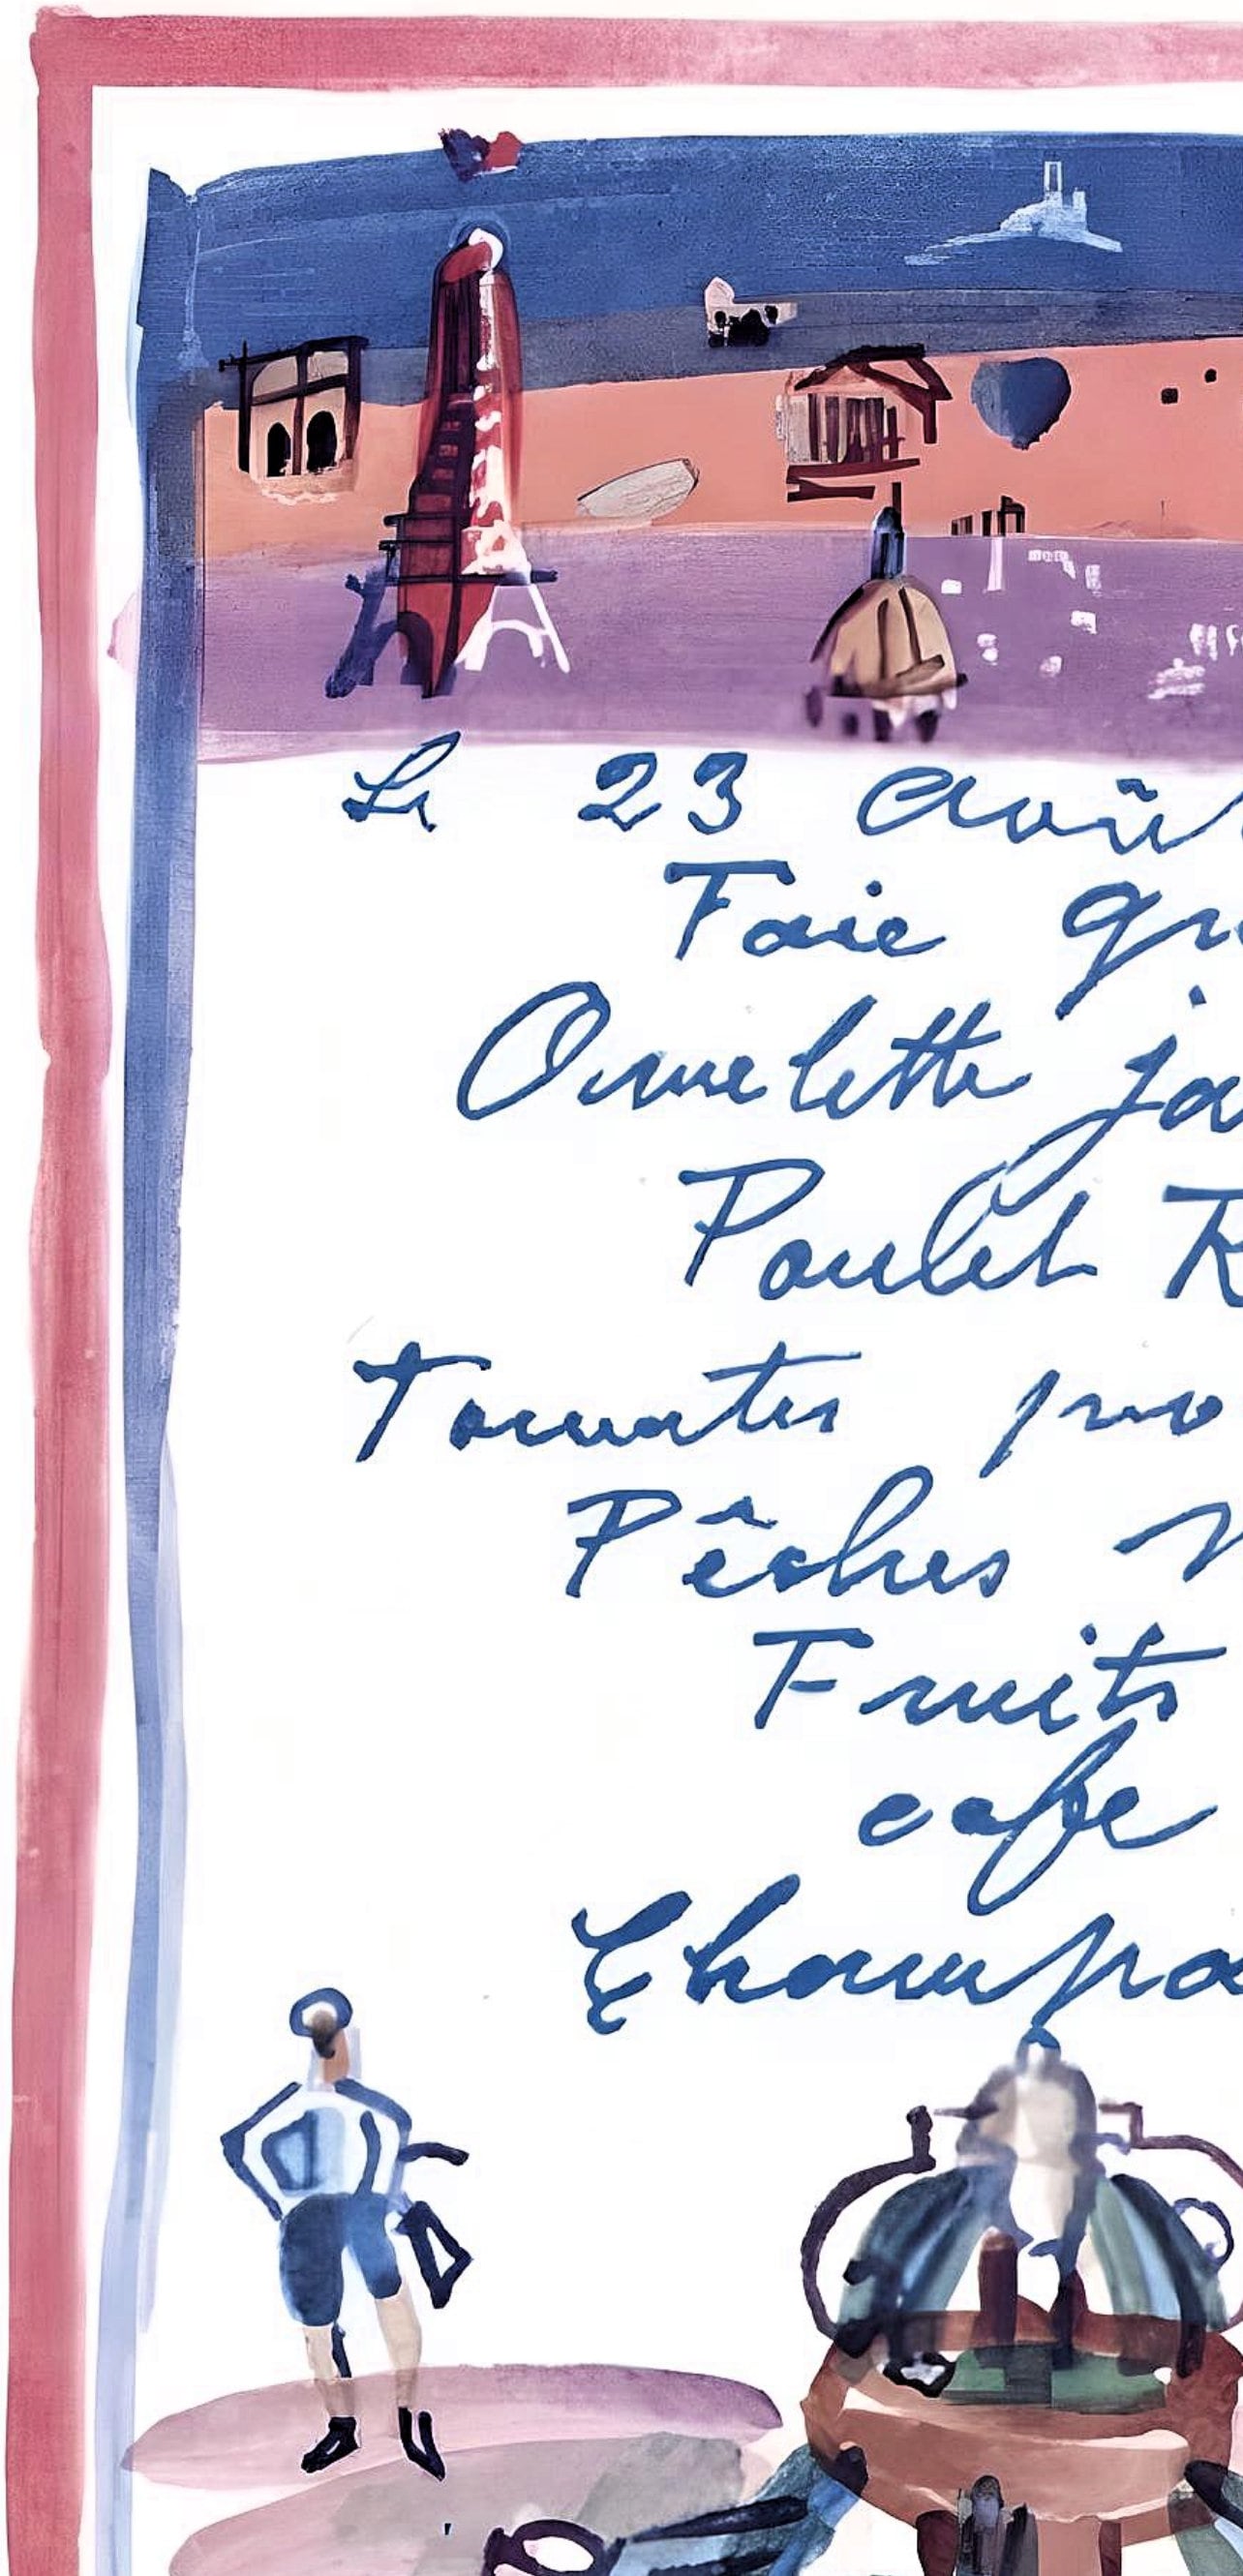 Le 23 Aoû
Foie gr
Omelette ja
Poulet R
Tomates pro
Pêches
Fruits
cafe
Champa